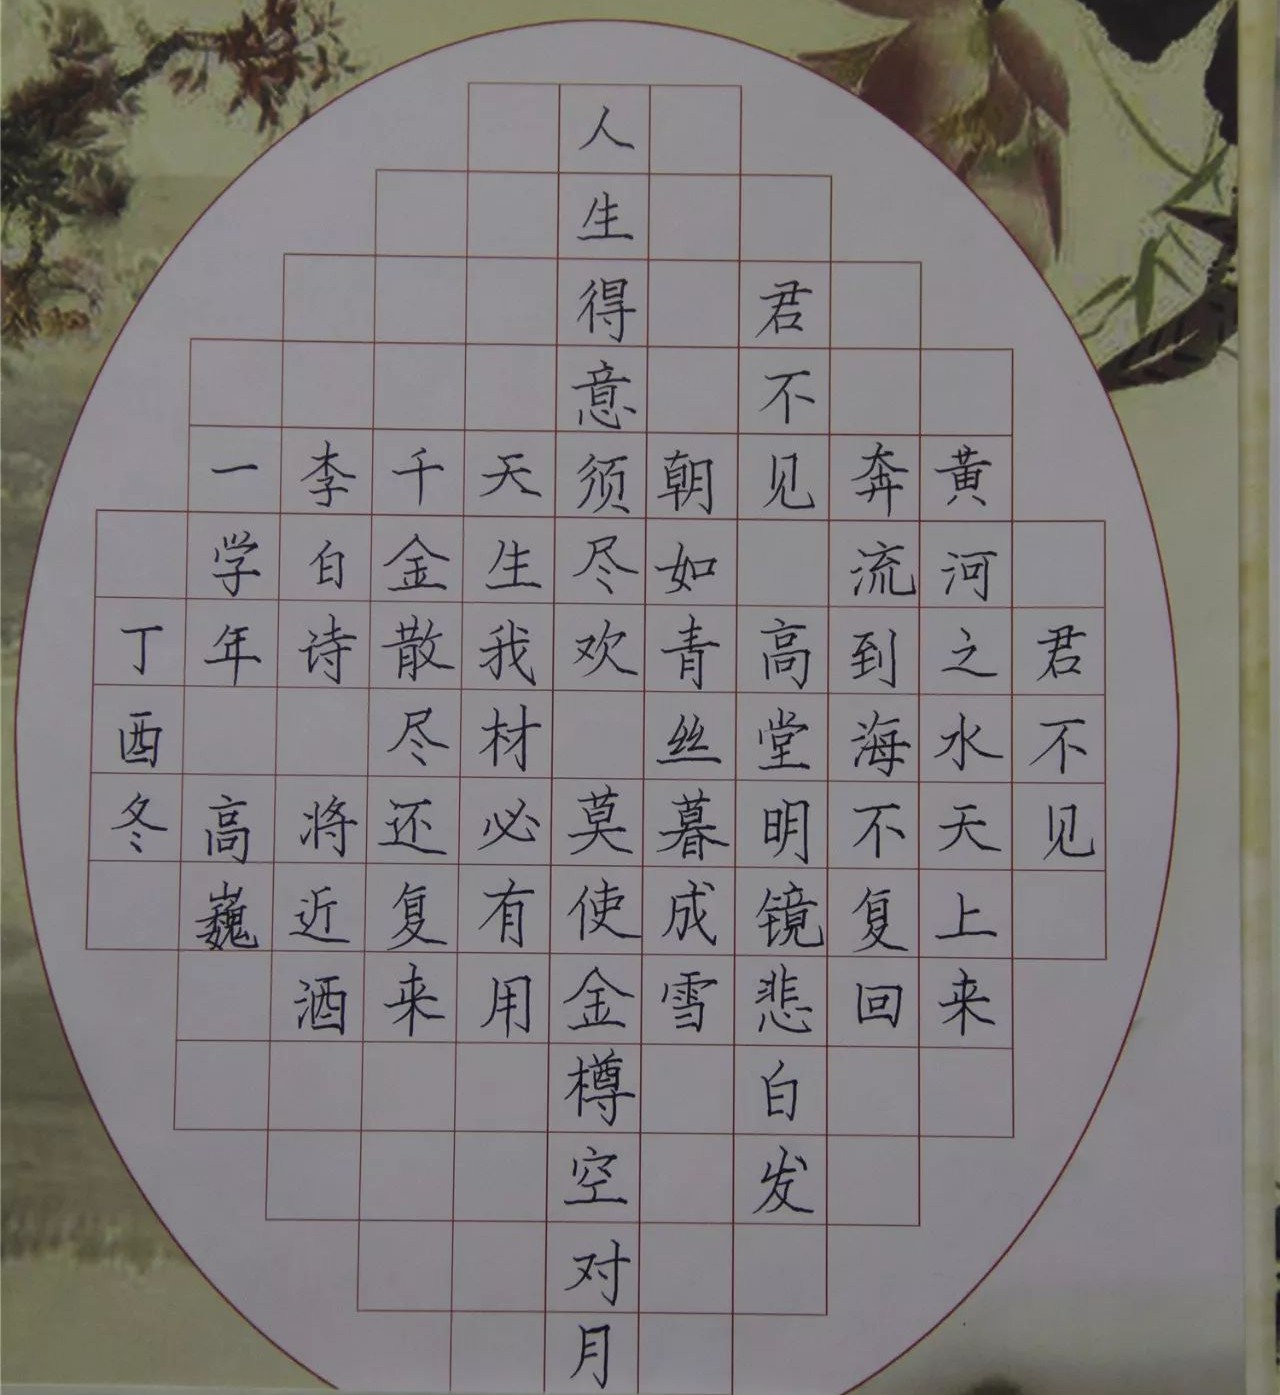 君不见
黄河之水天上来
奔流到海不复回
君不见
高堂明镜悲白发
朝如青丝暮成雪
人生得意须尽欢
莫使金樽空对月
天生我材必有用
千金散尽还复来
李白诗
将近酒
一学年
高巍
丁酉冬